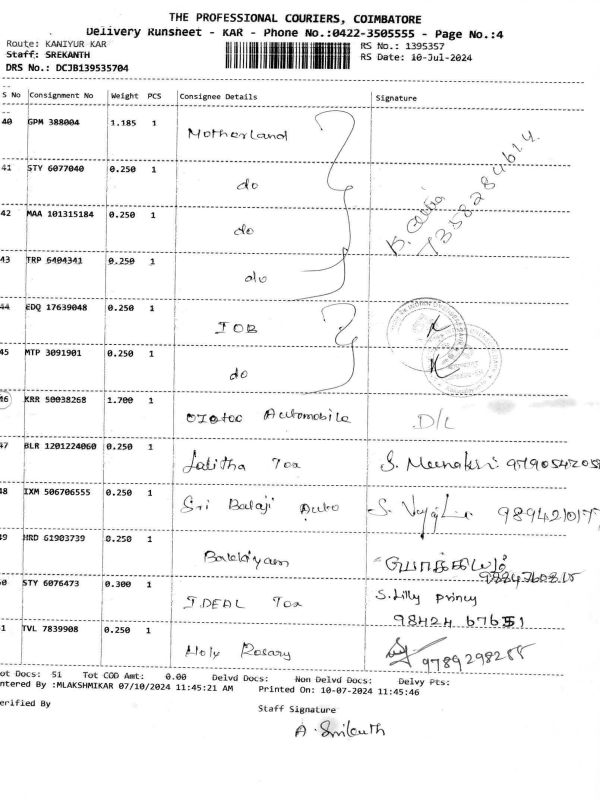 THE PROFESSIONAL COURIERS, COIMBATORE
Delivery Runsheet - KAR - Phone No.:0422-3505555 - Page No.:4
Route: KANIYUR KAR RS No.: 1395357
Staff: SREKANTH RS Date: 10-Jul-2024
DRS No.: DCJB139535704
S No Consignment No Weight PCS Consignee Details Signature
40 GPM 388004 1.185 1 Motherland
41 STY 6077040 0.250 1 do
7358284614
42 MAA 101315184 0.250 1 do
43 TRP 6404341 0.250 1 do
44 EDQ 17639048 0.250 1 IOB
45 MTP 3091901 0.250 1 do
46 KRR 50038268 1.700 1 Automobile D/L
47 BLR 1201224060 0.250 1 Lalitha Tex S. Meenakshi
48 IXM 506706555 0.250 1 Sri Balaji Auto S. 989421017
49 HRD 61903739 0.250 1
50 STY 6076473 0.300 1 IDEAL Tex S. Lilly princy
98424 67651
51 TVL 7839908 0.250 1 Holy Rosary 9789298288
ot Docs: 51 Tot COD Amt: 0.00 Delvd Docs: Non Delvd Docs: Delvy Pts:
ntered By :MLAKSHMIKAR 07/10/2024 11:45:21 AM Printed On: 10-07-2024 11:45:46
erified By
Staff Signature